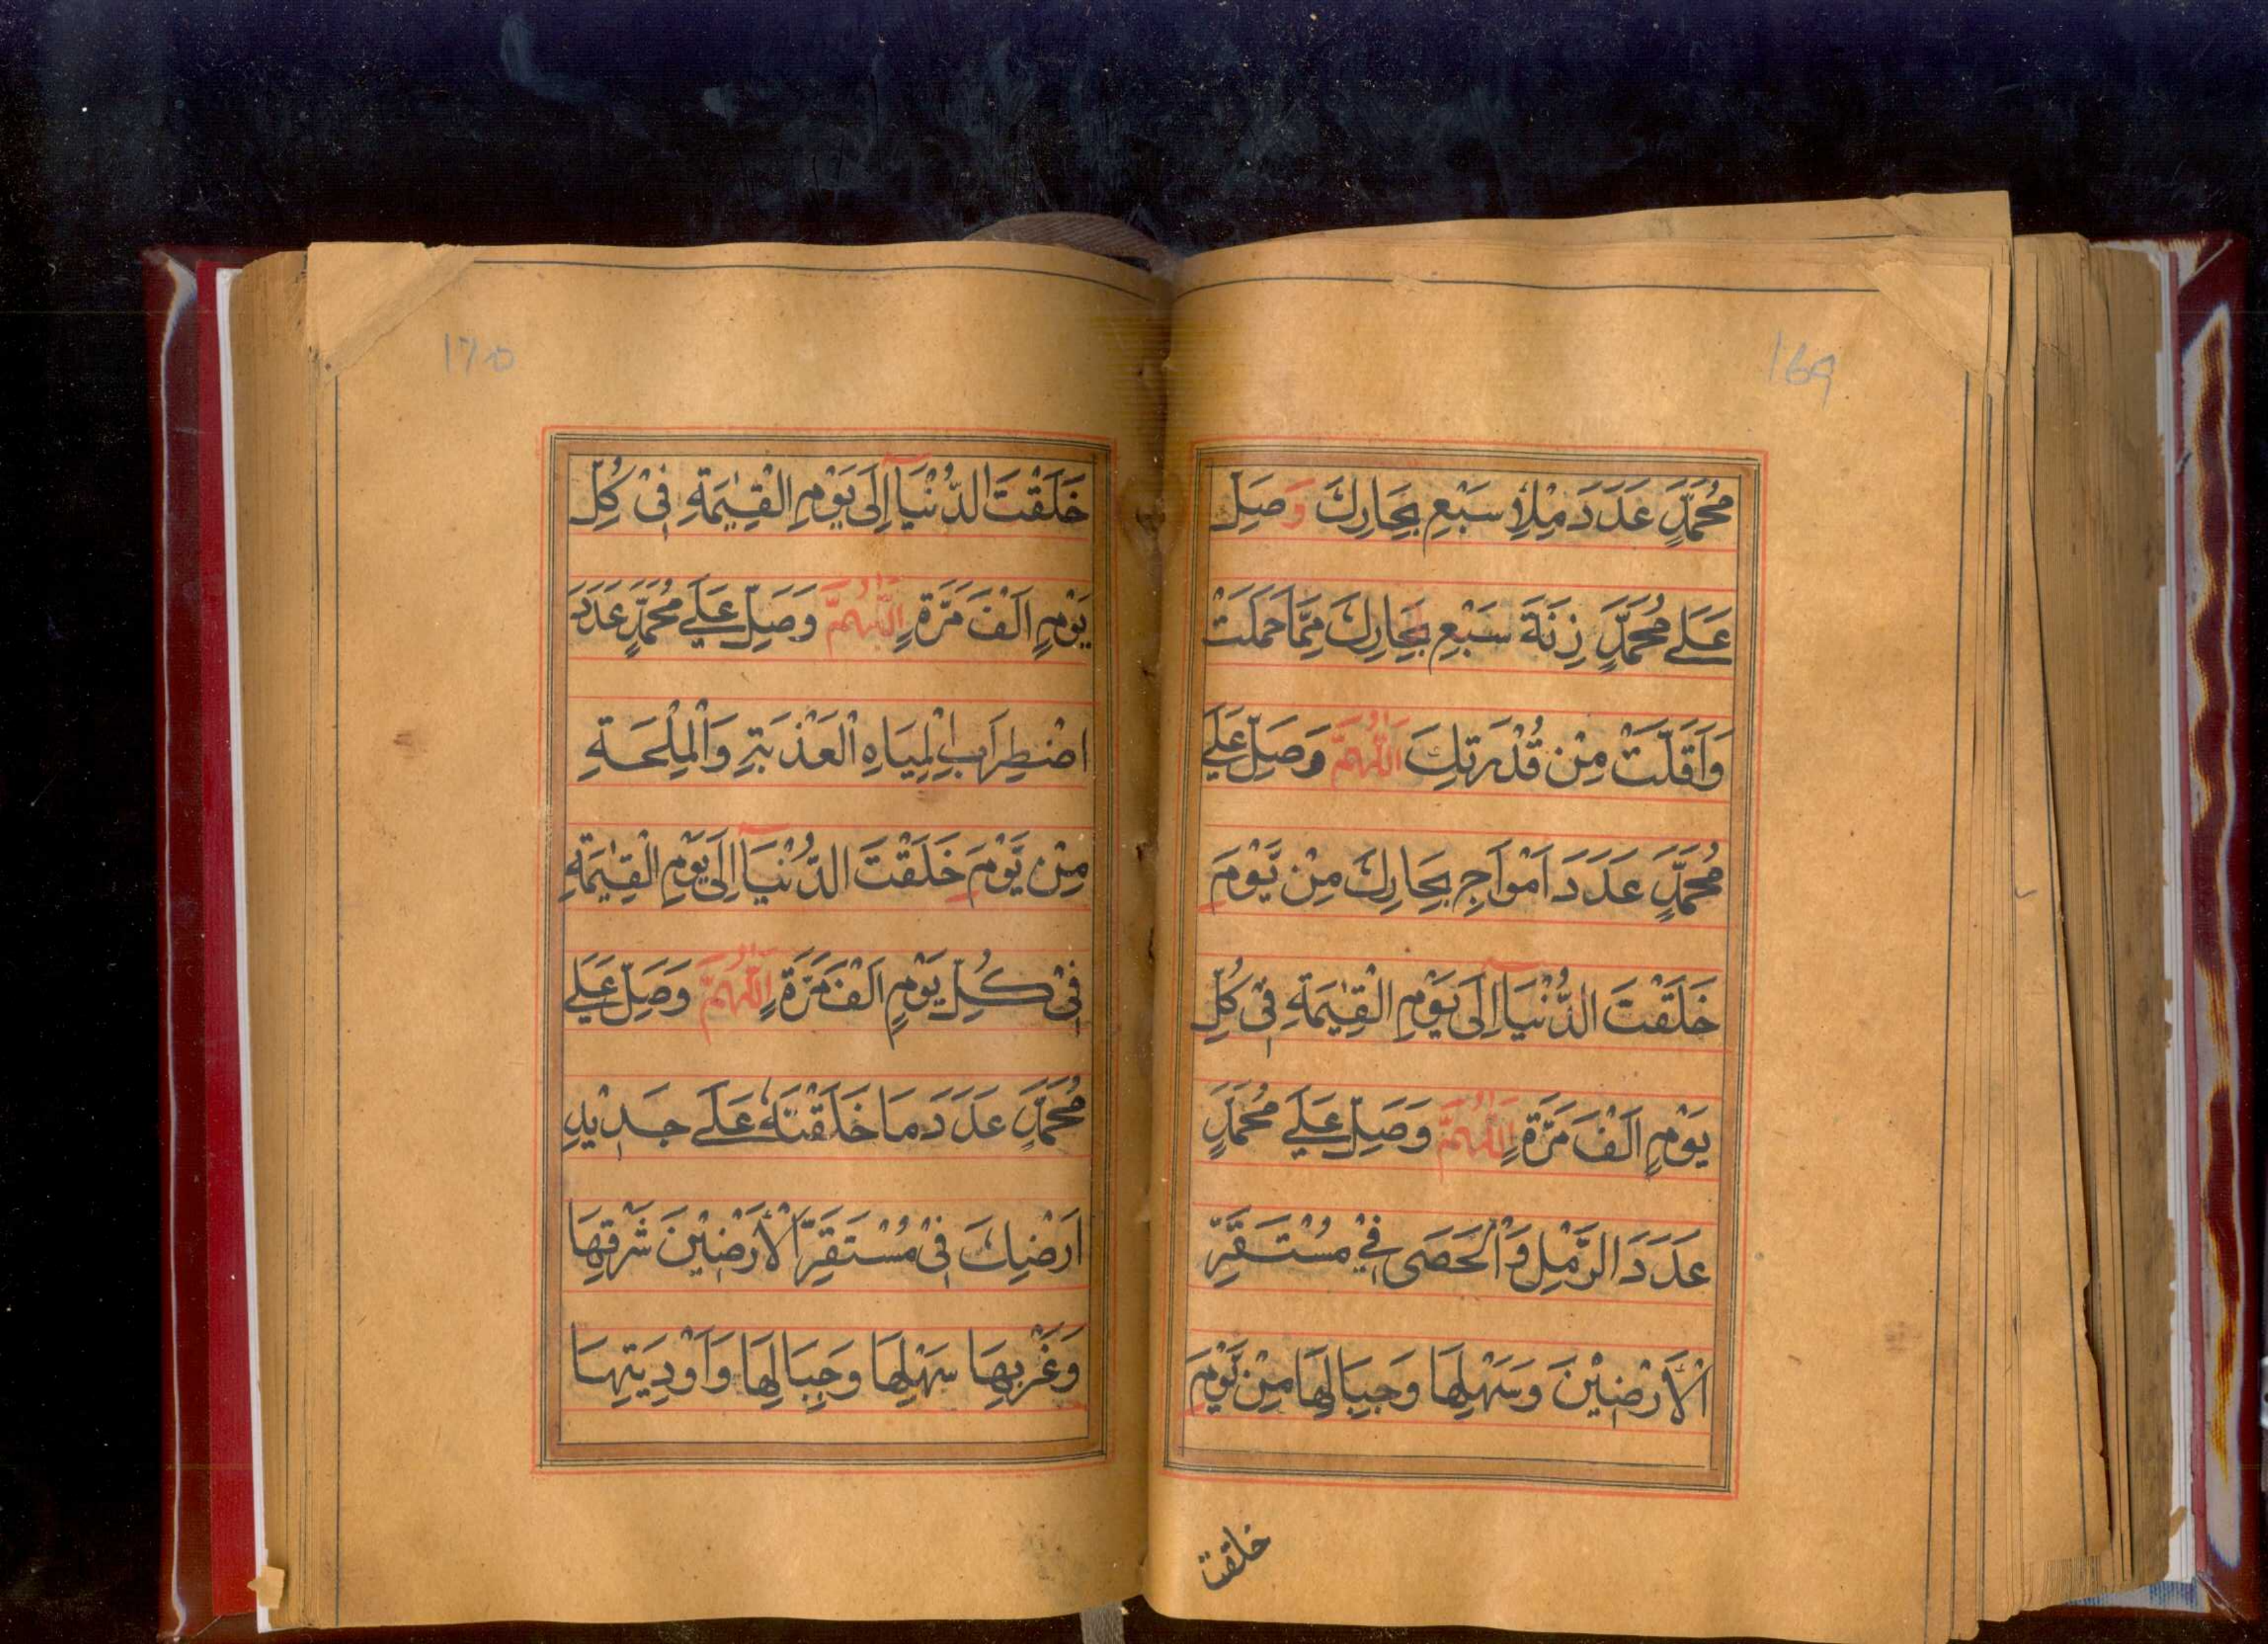 169
مُحَمَّدٍ عَدَدَ مِلْأِ سَبْعِ بِحَارِكَ وَصَلِّ
عَلٰى مُحَمَّدٍ زِنَةَ سَبْعِ بِحَارِكَ مِمَّا حَمَلَتْ
وَاَقَلَّتْ مِنْ قُدْرَتِكَ اَللّٰهُمَّ وَصَلِّ عَلٰى
مُحَمَّدٍ عَدَدَ اَمْوَاجِ بِحَارِكَ مِنْ يَّوْمَ
خَلَقْتَ الدُّنْيَآ اِلَى يَوْمِ الْقِيٰمَةِ فِيْ كُلِّ
يَوْمٍ اَلْفَ مَرَّةٍ اَللّٰهُمَّ وَصَلِّ عَلٰى مُحَمَّدٍ
عَدَدَ الرَّمْلِ وَالْحَصَى فِيْ مُسْتَقَرِّ
الْأَرْضِيْنَ وَسَهْلِهَا وَجِبَالِهَا مِنْ يَّوْمَ
خلقت
170
خَلَقْتَ الدُّنْيَآ اِلَى يَوْمِ الْقِيٰمَةِ فِيْ كُلِّ
يَوْمٍ اَلْفَ مَرَّةٍ اَللّٰهُمَّ وَصَلِّ عَلٰى مُحَمَّدٍ عَدَدَ
اضْطِرَابِ الْمِيَاهِ الْعَذْبَةِ وَالْمِلْحَةِ
مِنْ يَّوْمَ خَلَقْتَ الدُّنْيَآ اِلَى يَوْمِ الْقِيٰمَةِ
فِيْ كُلِّ يَوْمٍ اَلْفَ مَرَّةٍ اَللّٰهُمَّ وَصَلِّ عَلٰى
مُحَمَّدٍ عَدَدَ مَا خَلَقْتَهُ عَلَى جَدِيْدِ
اَرْضِكَ فِيْ مُسْتَقَرِّ الْأَرْضِيْنَ شَرْقِهَا
وَغَرْبِهَا سَهْلِهَا وَجِبَالِهَا وَاَوْدِيَتِهَا